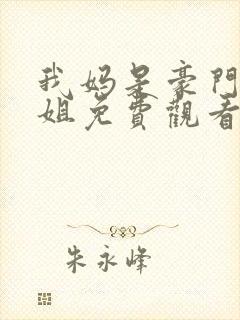 我妈是豪門
姐免費觀看
朱永峰